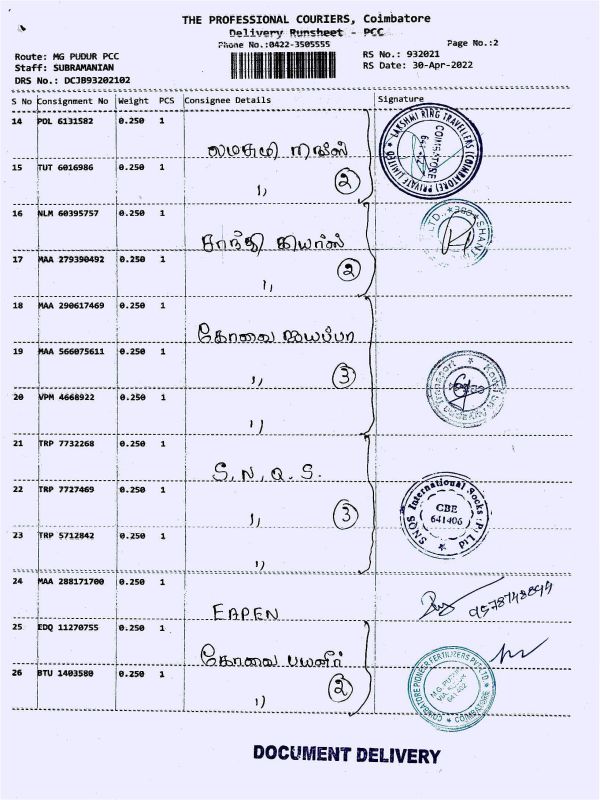 THE PROFESSIONAL COURIERS, Coimbatore
Delivery Runsheet - PCC
Phone No.:0422-3505555
Page No.:2
Route: MG PUDUR PCC
RS No.: 932021
Staff: SUBRAMANIAN
RS Date: 30-Apr-2022
DRS No.: DCJB93202102
S No Consignment No Weight PCS Consignee Details Signature
14 POL 6131582 0.250 1
15 TUT 6016986 0.250 1
,, 2
LAKSHMI RING TRAVELLERS (COIMBATORE) PRIVATE LIMITED
COIMBATORE
16 NLM 60395757 0.250 1
சாந்தி கியர்ஸ்
17 MAA 279390492 0.250 1
,, 2
18 MAA 290617469 0.250 1
கோவை ஐயப்பா
19 MAA 566075611 0.250 1
,, 3
20 VPM 4668922 0.250 1
,,
21 TRP 7732268 0.250 1
S.N.Q.S.
22 TRP 7727469 0.250 1
,, 3
SNQS International Socks (P) Ltd
CBE
641406
23 TRP 5712842 0.250 1
,,
24 MAA 288171700 0.250 1
EAPEN
25 EDQ 11270755 0.250 1
கோவை பயனீர்
26 BTU 1403580 0.250 1
,, 2
COIMBATORE PIONEER FERTILIZERS PVT. LTD.
M.G. PUDUR
COIMBATORE
DOCUMENT DELIVERY